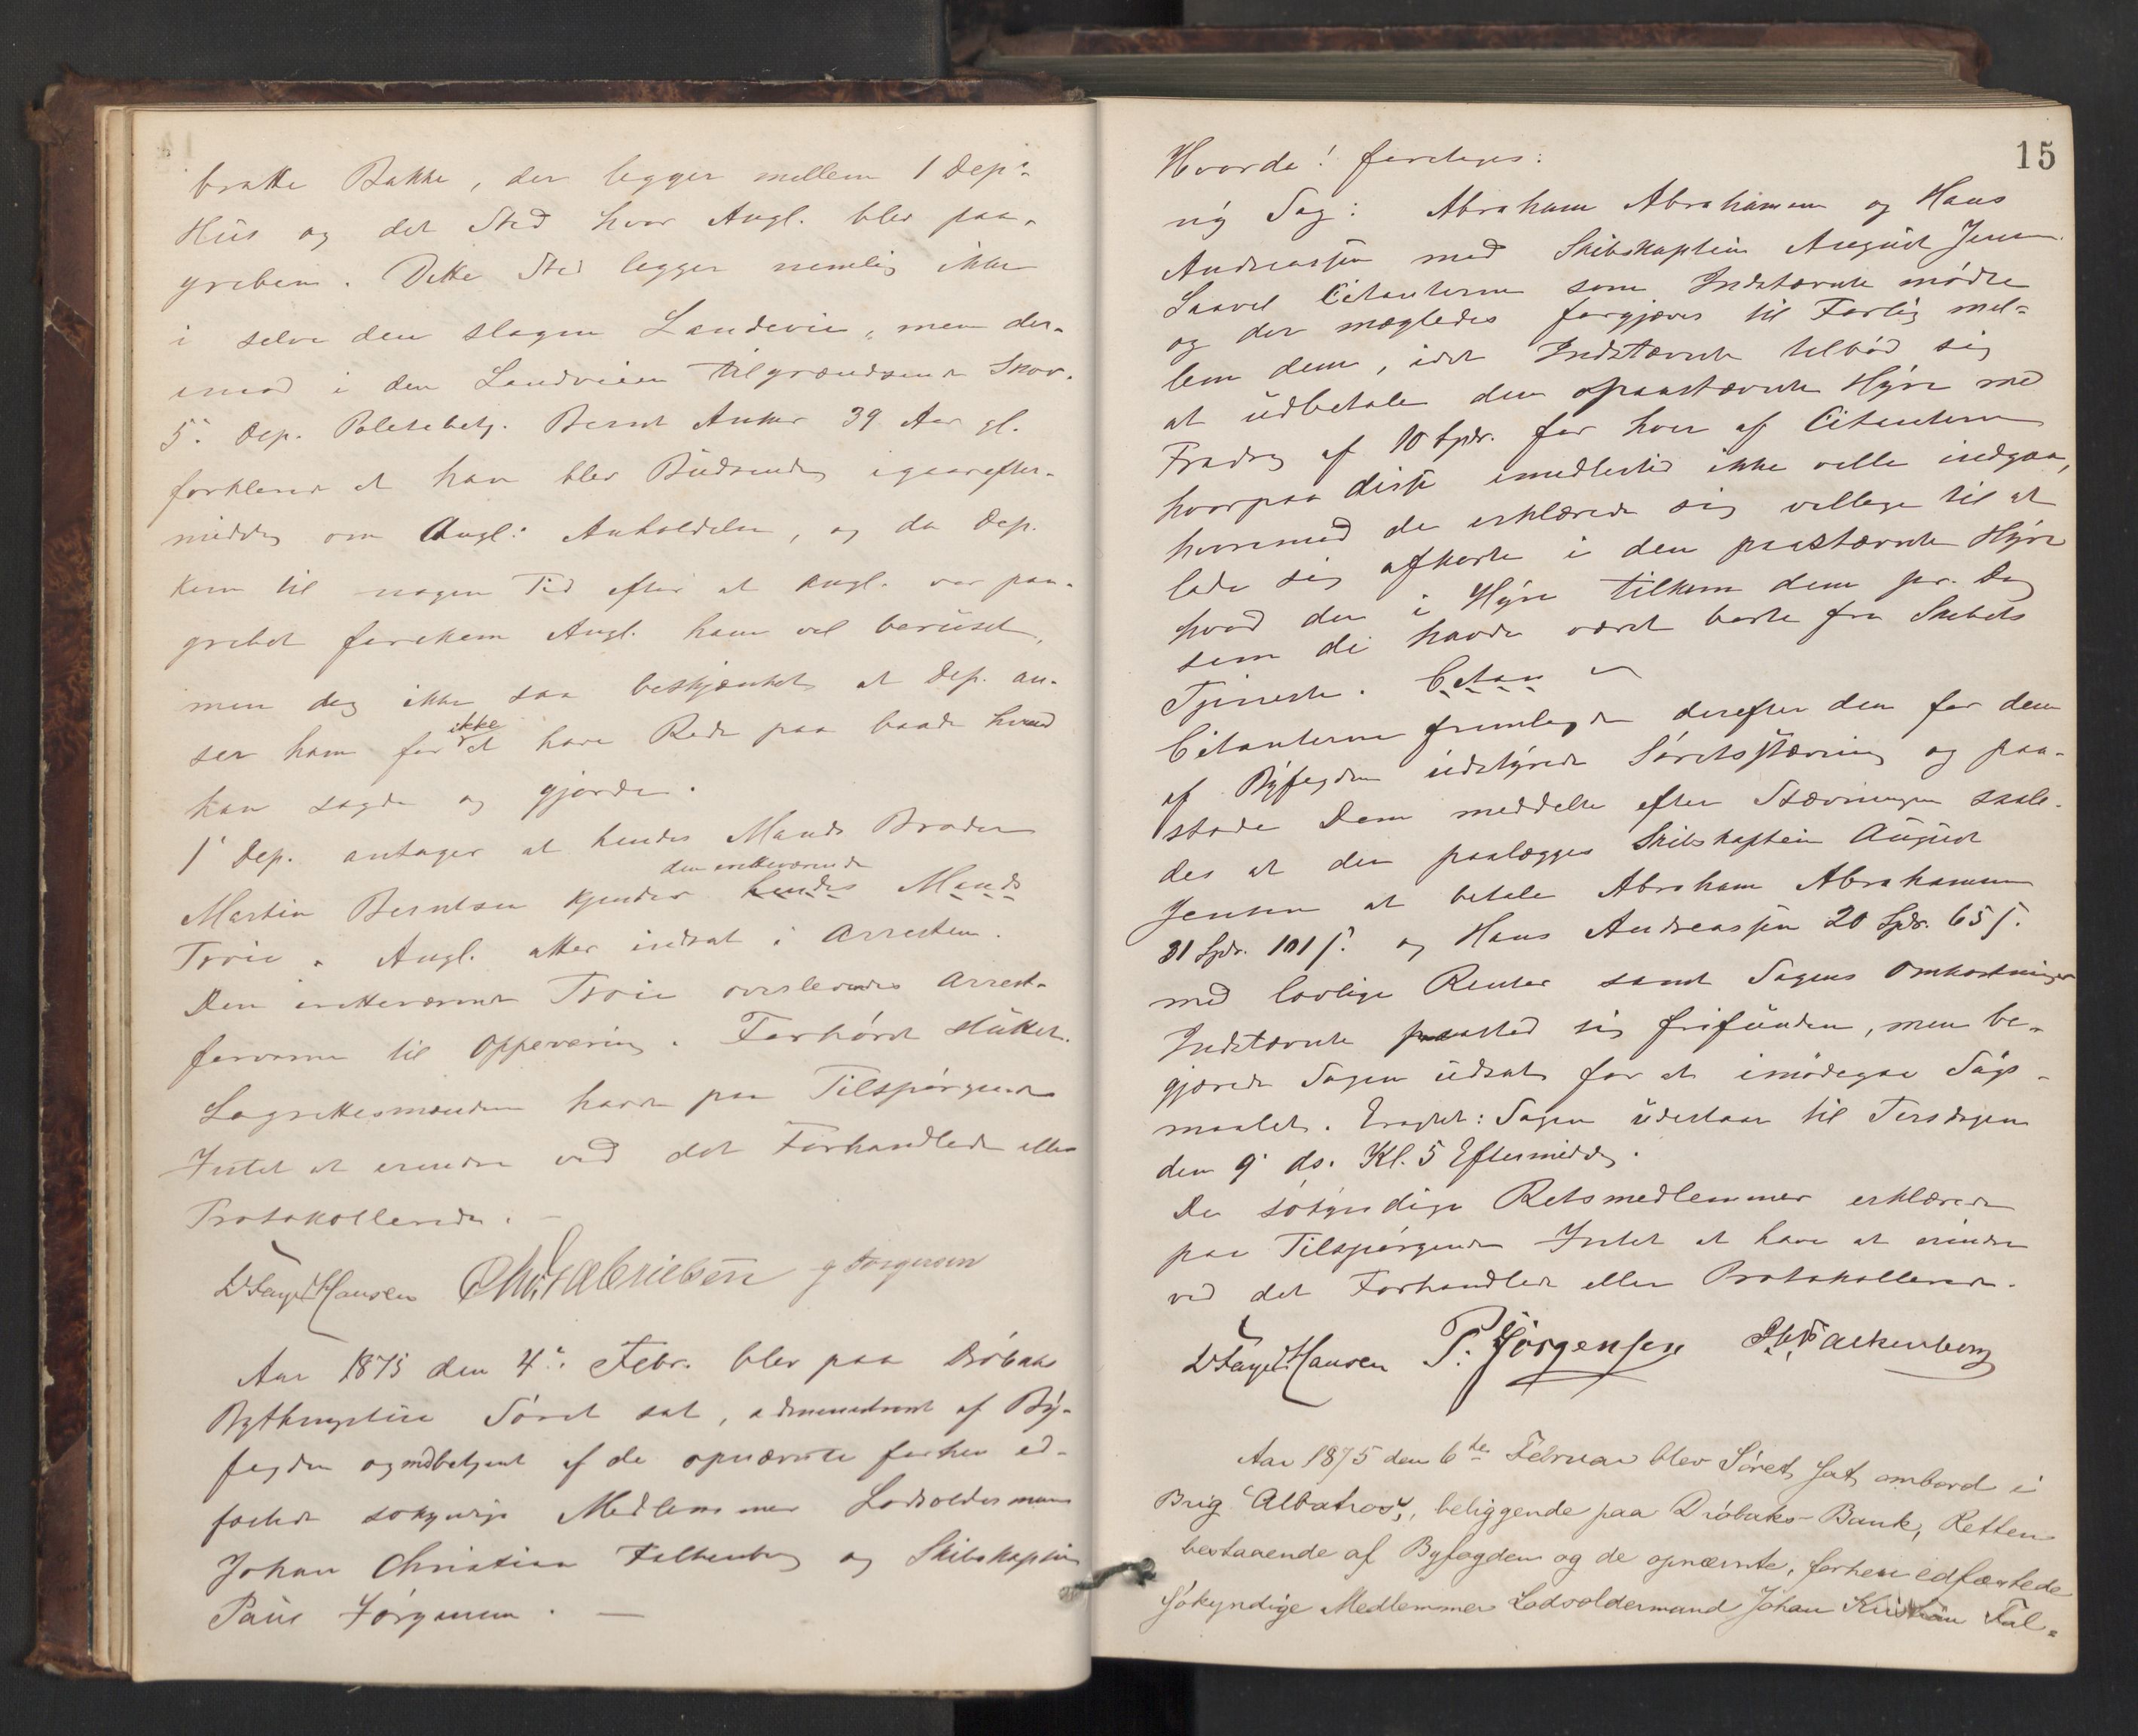 bratte Bakke, der legger mellem 1 Dep:s
Hüs og det Sted hvor Angl. blev paa-
greben. Dette Sted legger nemlig ikke
i selve den slagne Landevei, men der-
imod i den Landveien tilgrændsende Skov.
5. Dep. Politibetj. Bernt Anker 39 Aar gl.
forklarer at han blev Büdsendt igaarefter-
middag om Angl: Anholdelse, og da Dep.
kom til nogen Tid efter at Angl. var paa-
grebet forekom Angl. ham vel berüset,
men dog ikke saa beskjænket at Dep. an-
ser ham for ikke at have Rede paa baade hvad
han sagde og gjorde.
1 Dep. antager at hendes Mands Broder
Martin Berntsen kjender hendes Mands den iretteværende
Trøie. Angl. atter indsat i Arresten.
Den iretteværende Trøie overleveredes Arrest-
forvareren til Oppevaring. Forhøret slüttet.
Lagrettesmændene havde paa Tilspørgende
Intet at erindre ved det Forhandlede eller
Protokollerede. —
Hansen Chr. Gabrielsen Jørgensen
Aar 1875 den 4de Febr. blev paa Drøbaks
Bythingstüe Søret sat, administreret af By-
fogden og medbetjent af de opnævnte forhen ed-
fæstede søkyndige Medlemmer Lodsoldermand
Johan Christian Falkenberg og Skibskaptein
Paül Jørgensen. —
15
Hvorda! foretoges:
ny Sag: Abraham Abrahamsen og Hans
Andreassen mod Skibskaptein August Jensen.
Saavel Citanterne som Indstævnte mødte
og der mægledes forgjæves til Forlig mel-
lem dem, idet Indstævnte tilbød sig
at üdbetale den paastævnte Hyre med
Fradrag af 10 Spdr. for hver af Citanterne
hvorpaa disse imidlertid ikke ville indgaa,
hvorimod de erklærede sig villige til at
lade sig afkorte i den paastævnte Hyre
hvad der i Hyre tilkom dem pr. Dag
som de havde været borte fra Skibets
Tjeneste. Citan
Citanterne fremlagde derefter den for dem
af Byfogden üdstyrede Søretsstævning og paa-
stode Dom meddelte efter Stævningen saale-
des at det paalægges Skibskaptein Aügüst
Jensen at betale Abraham Abrahamsen
31 Spdr. 101 s. og Hans Andreassen 20 Spdr. 65 s.
med lovlige Renter samt Sagens Omkostninger
Indstævnte paastod sig frifünden, men be-
gjærede Sagen üdsat for at imødegaa Søgs-
maalet. Eragtet: Sagen üdestaar til Tirsdagen
den 9. ds. Kl. 5 Eftermiddag.
De søkyndige Retsmedlemmer erklærede
paa Tilspørgende Intet at have at erindre
ved det Forhandlede eller Protokollerede.
Hansen P. Jörgensen Falckenberg
Aar 1875 den 6te Februar blev Søret sat ombord i
Brig "Albatros", beliggende paa Drøbaks-Bank, Retten
bestaaende af Byfogden og de opnævnte, forhen edfæstede
søkyndige Medlemmer Lodsoldermand Johan Kristian Fal-